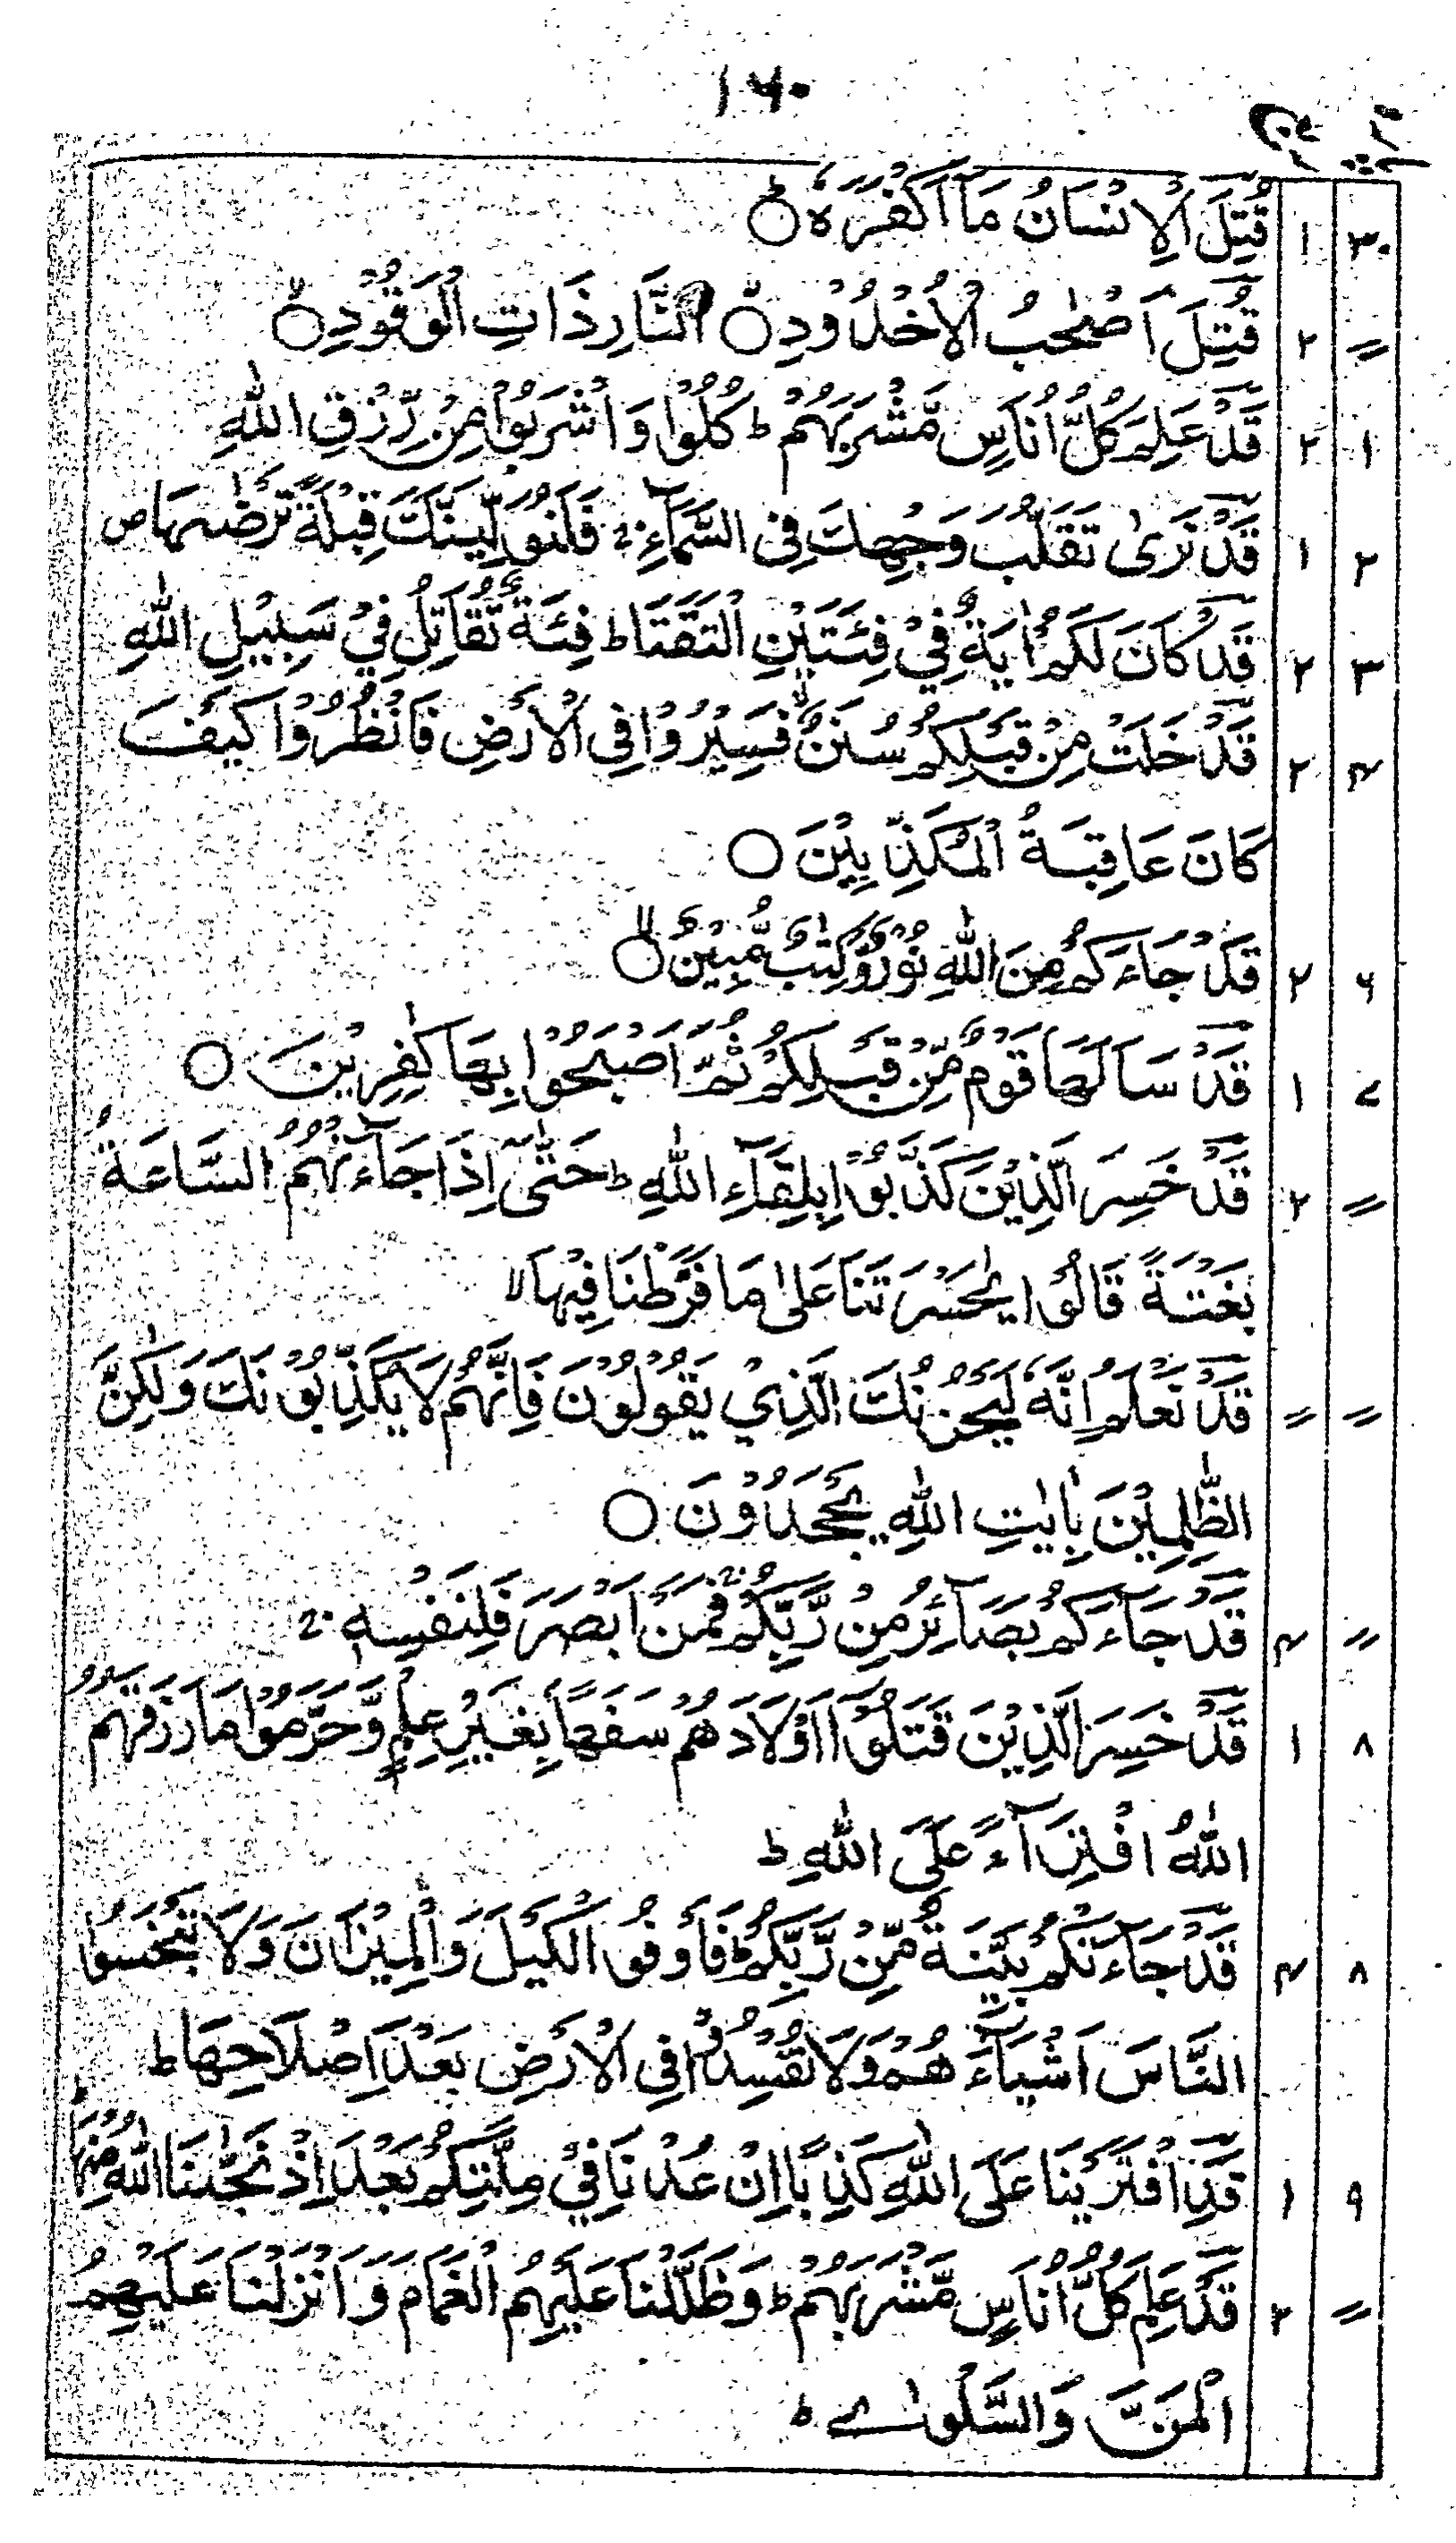 ۱۶۰
۳۰ ۱ قُتِلَ الْاِنْسَانُ مَآ اَكْفَرَهٗ ؕ○
〃 ۲ قُتِلَ اَصْحٰبُ الْاُخْدُوْدِ ○ النَّارِ ذَاتِ الْوَقُوْدِ ۙ○
۱ ۲ قَدْ عَلِمَ كُلُّ اُنَاسٍ مَّشْرَبَهُمْ ؕ كُلُوْا وَاشْرَبُوْا مِنْ رِّزْقِ اللّٰهِ
۲ ۱ قَدْ نَرٰى تَقَلُّبَ وَجْهِكَ فِى السَّمَآءِ ۚ فَلَنُوَلِّيَنَّكَ قِبْلَةً تَرْضٰىهَا ص
۳ ۲ قَدْ كَانَ لَكُمْ اٰيَةٌ فِيْ فِئَتَيْنِ الْتَقَتَا ؕ فِئَةٌ تُقَاتِلُ فِيْ سَبِيْلِ اللّٰهِ
۴ ۲ قَدْ خَلَتْ مِنْ قَبْلِكُمْ سُنَنٌ ۙ فَسِيْرُوْا فِى الْاَرْضِ فَانْظُرُوْا كَيْفَ
كَانَ عَاقِبَةُ الْمُكَذِّبِيْنَ ○
۶ ۲ قَدْ جَاءَكُمْ مِنَ اللّٰهِ نُوْرٌ وَّكِتٰبٌ مُّبِيْنٌ ۙ○
۷ ۱ قَدْ سَاَلَهَا قَوْمٌ مِّنْ قَبْلِكُمْ ثُمَّ اَصْبَحُوْا بِهَا كٰفِرِيْنَ ○
〃 ۲ قَدْ خَسِرَ الَّذِيْنَ كَذَّبُوْا بِلِقَآءِ اللّٰهِ ؕ حَتّٰٓى اِذَا جَآءَتْهُمُ السَّاعَةُ
بَغْتَةً قَالُوْا يٰحَسْرَتَنَا عَلٰى مَا فَرَّطْنَا فِيْهَا ۙ
〃 〃 قَدْ نَعْلَمُ اِنَّهٗ لَيَحْزُنُكَ الَّذِيْ يَقُوْلُوْنَ فَاِنَّهُمْ لَا يُكَذِّبُوْنَكَ وَلٰكِنَّ
الظّٰلِمِيْنَ بِاٰيٰتِ اللّٰهِ يَجْحَدُوْنَ ○
〃 ۴ قَدْ جَآءَكُمْ بَصَآئِرُ مِنْ رَّبِّكُمْ ۚ فَمَنْ اَبْصَرَ فَلِنَفْسِهٖ ۚ
۸ ۱ قَدْ خَسِرَ الَّذِيْنَ قَتَلُوْٓا اَوْلَادَهُمْ سَفَهًا بِغَيْرِ عِلْمٍ وَّحَرَّمُوْا مَا رَزَقَهُمُ
اللّٰهُ افْتِرَآءً عَلَى اللّٰهِ ؕ
۸ ۴ قَدْ جَآءَتْكُمْ بَيِّنَةٌ مِّنْ رَّبِّكُمْ فَاَوْفُوا الْكَيْلَ وَالْمِيْزَانَ وَلَا تَبْخَسُوا
النَّاسَ اَشْيَآءَهُمْ وَلَا تُفْسِدُوْا فِى الْاَرْضِ بَعْدَ اِصْلَاحِهَا ؕ
۹ ۱ قَدِ افْتَرَيْنَا عَلَى اللّٰهِ كَذِبًا اِنْ عُدْنَا فِيْ مِلَّتِكُمْ بَعْدَ اِذْ نَجّٰىنَا اللّٰهُ مِنْهَا ؕ
〃 ۲ قَدْ عَلِمَ كُلُّ اُنَاسٍ مَّشْرَبَهُمْ ؕ وَظَلَّلْنَا عَلَيْهِمُ الْغَمَامَ وَاَنْزَلْنَا عَلَيْهِمُ
الْمَنَّ وَالسَّلْوٰے ؕ